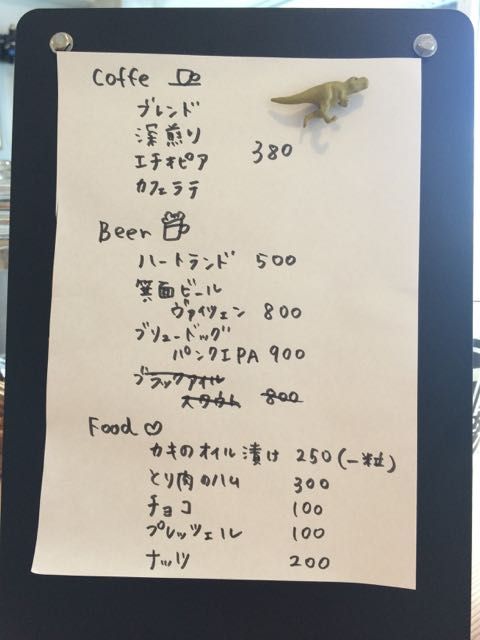 Coffe
ブレンド
深煎り
エチオピア 380
カフェラテ
Beer
ハートランド 500
箕面ビール
ヴァイツェン 800
ブリュードッグ
パンクIPA 900
ブラックアイル
スタウト 800
Food ♡
カキのオイル漬け 250(一粒)
とり肉のハム 300
チョコ 100
プレッツェル 100
ナッツ 200